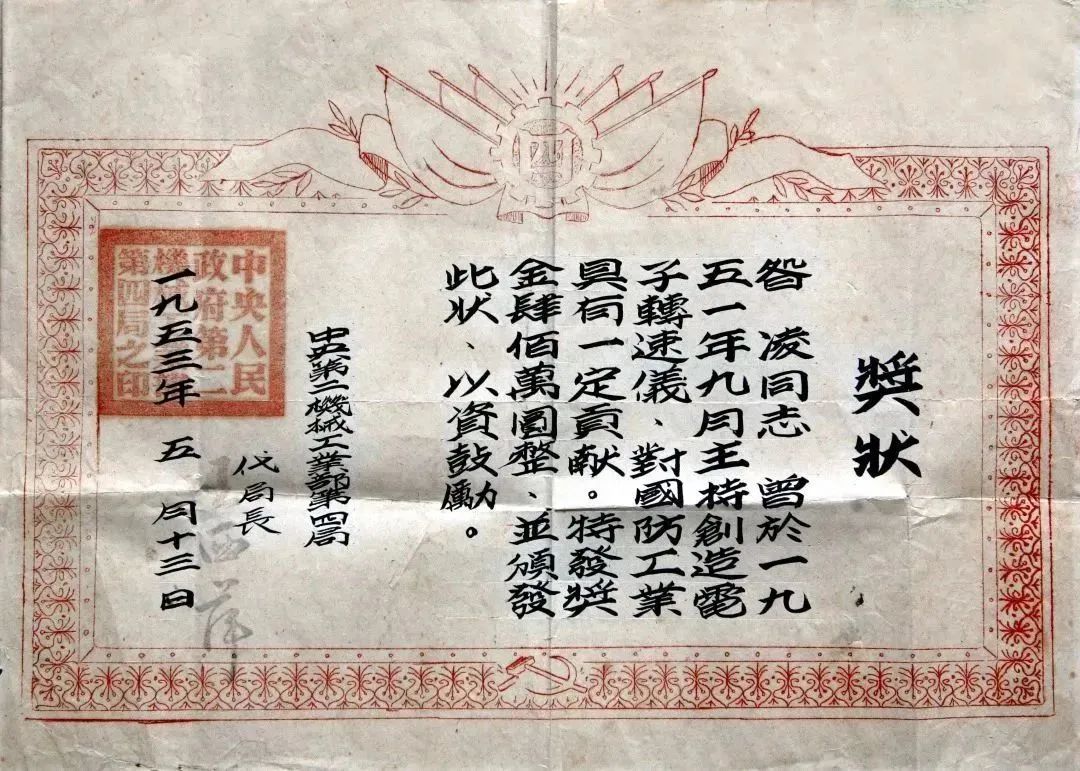 獎狀
昝 凌同志 曾於一九
五一年九月主持創造電
子轉速儀、對國防工業
具有一定貢献。特發獎
金肆佰萬圓整、並頒發
此状、以資鼓励。
中央第二機械工業部第四局
代局長
一九五三年 五 月十三日
中央人民
政府第二
機
第四局之印